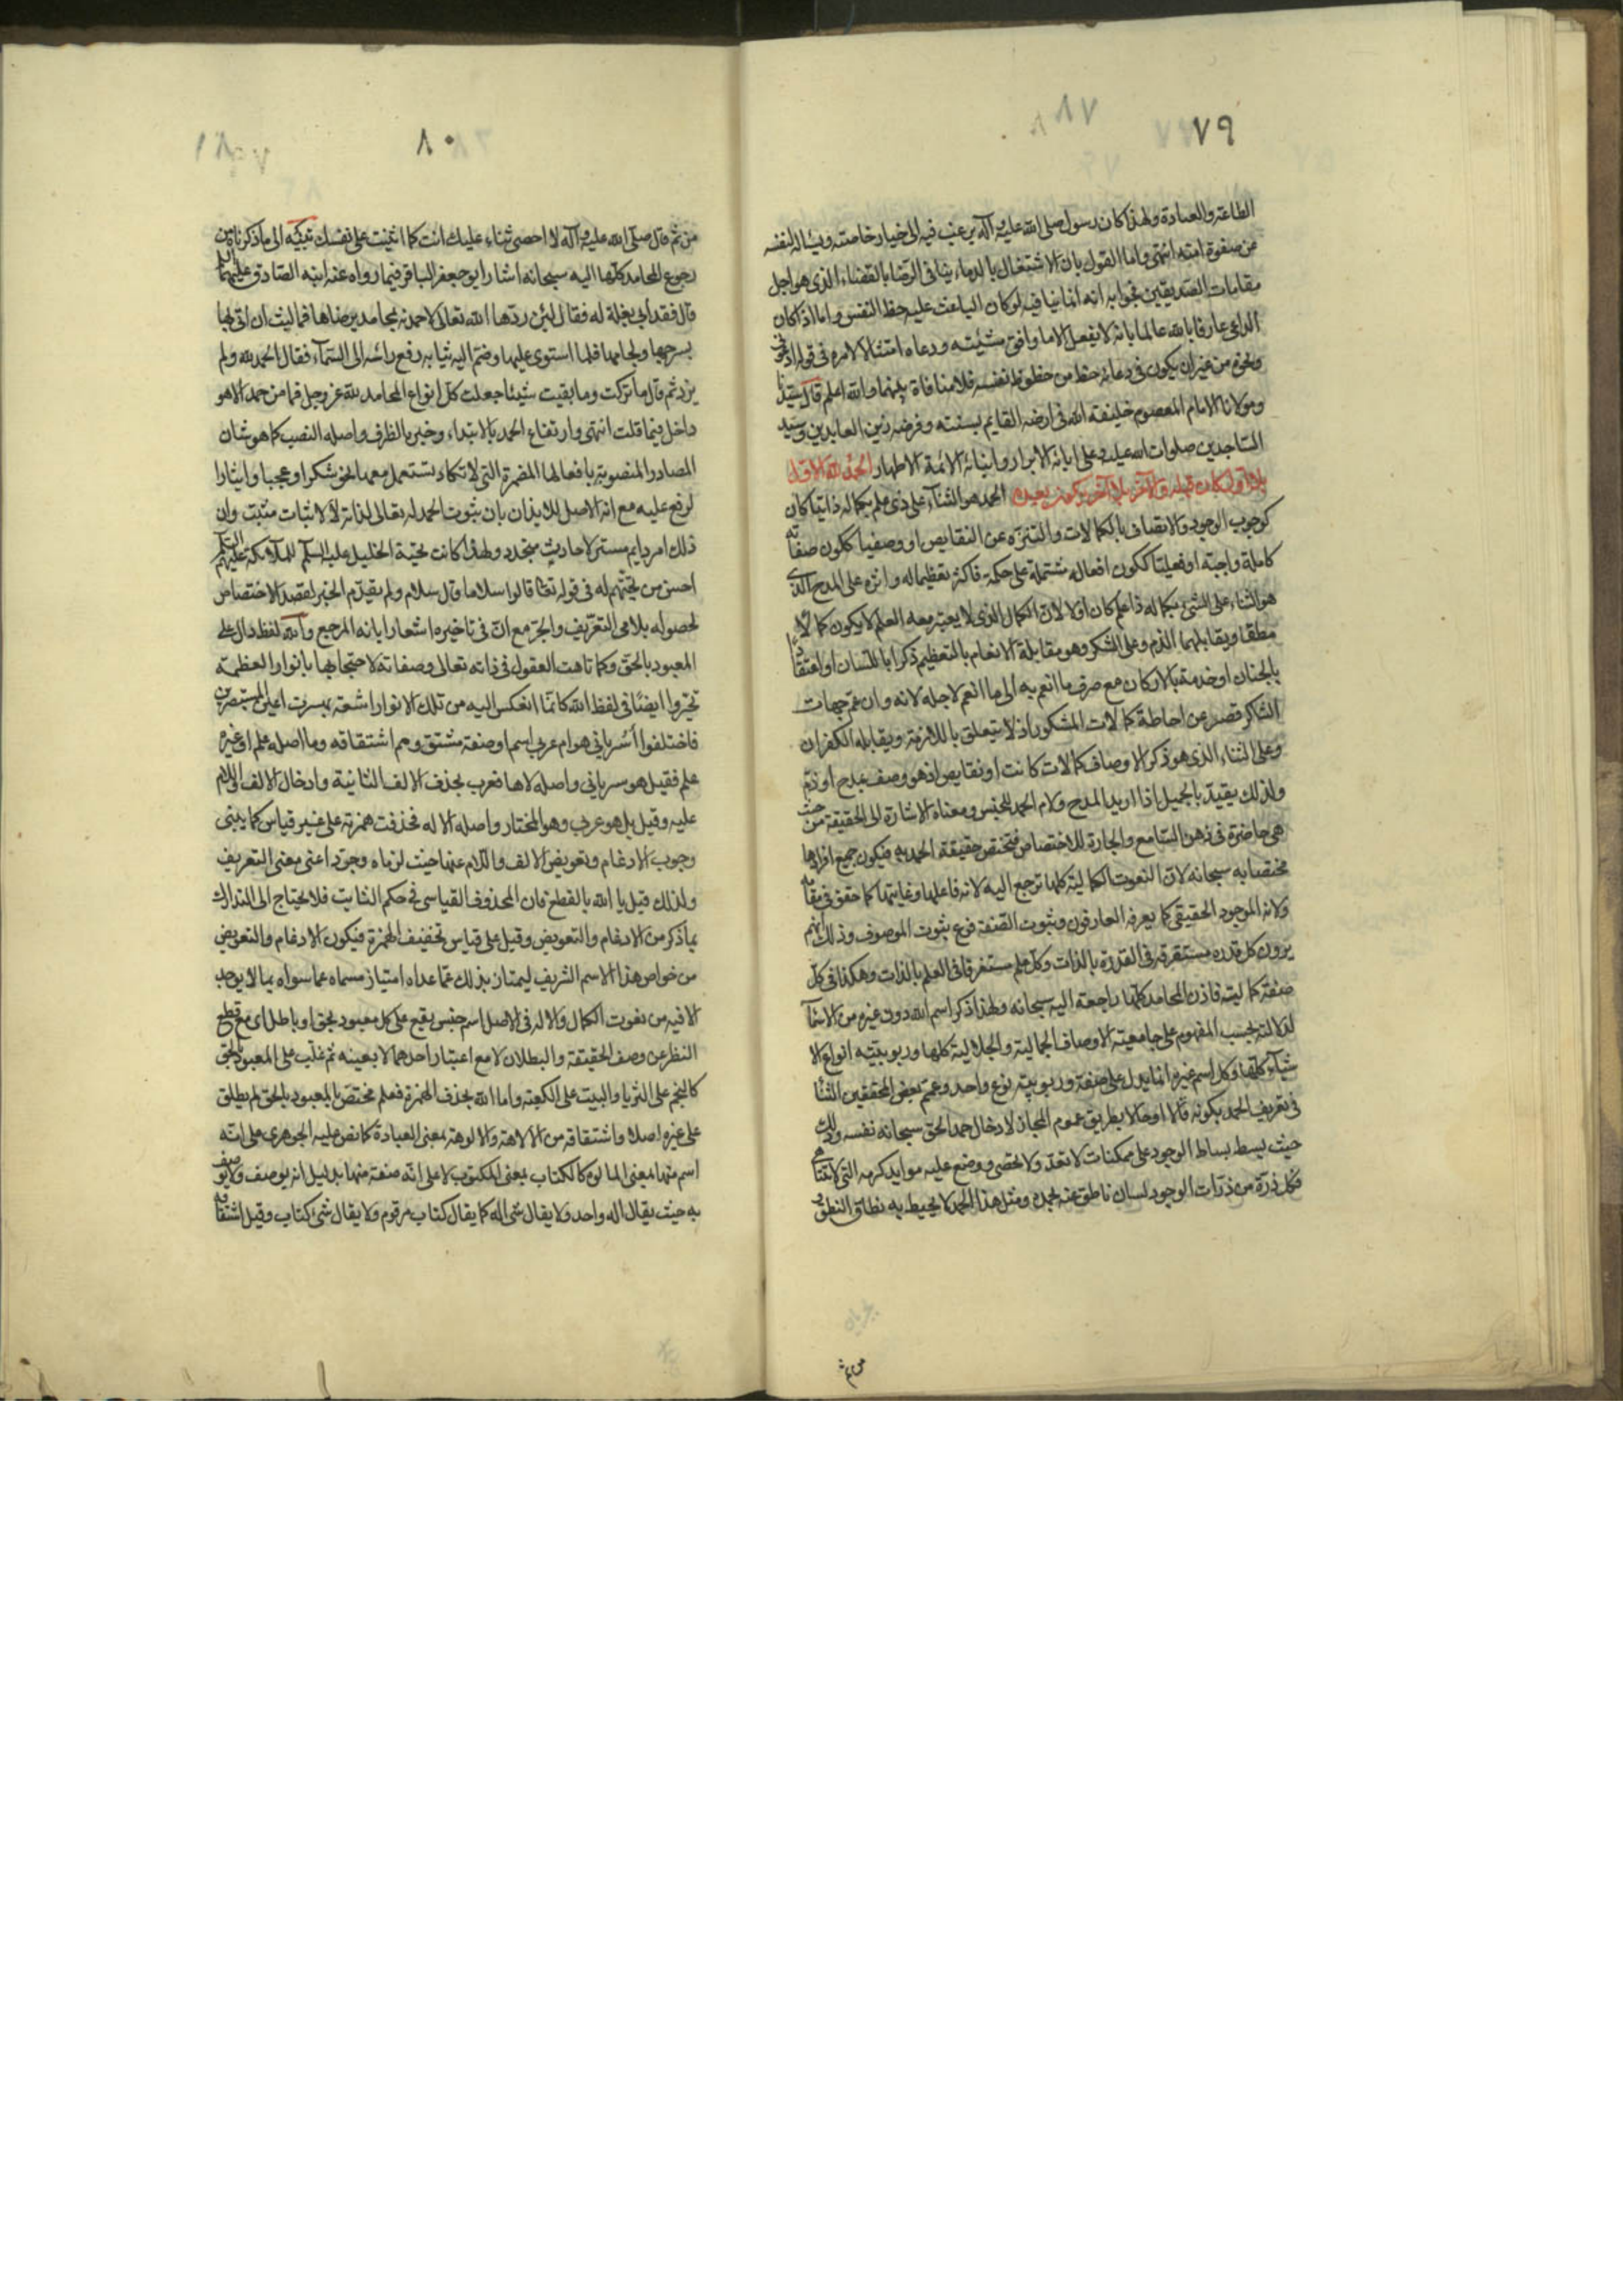 ٧٩
الطاعة والعبادة ولهذا كان رسول صلى الله عليه وآله يرغب فيه الى خيار خاصته ويسأله لنفسه
عن صفوة امته انتهى واما القول بان الاشتغال بالدعاء ينافى الرضا بالقضاء الذى هو اجل
مقامات الصديقين فجوابه انه انما ينافيه لو كان الباعث عليه حظ النفس واما اذا كان
الداعى عارفا بالله عالما بانه لا يفعل الا ما وافق مشيته ودعاه امتثالا لامره فى قوله ادعونى
ونحوه من غير ان يكون فى دعائه حظ من حظوظ نفسه فلا منافاة بينهما والله اعلم قال سيدنا
ومولانا الامام المعصوم خليفة الله فى ارضه القايم بسنته وفرضه زين العابدين وسيد
الساجدين صلوات الله عليه وعلى ابائه الابرار وابنائه الائمة الاطهار الحمد لله الاول
بلا اول كان قبله والآخر بلا آخر يكون بعده الحمد هو الثناء على ذى علم بكماله ذاتيا كان
كوجوب الوجود والاتصاف بالكمالات والتنزه عن النقايص او وصفيا ككون صفاته
كاملة واجبة او فعليا ككون افعاله مشتملة على حكمة فاكثر تعظيما له واثره على المدح الذى
هو الثناء على الشىء بكماله ذا علم كان اولا لان الكمال الذى لا يعتبر معه العلم لا يكون كمالا
مطلقا ويقابلهما الذم وعلى الشكر وهو مقابلة الانعام بالتعظيم ذكرا باللسان او اعتقادا
بالجنان او خدمة بالاركان مع صرف ما انعم به الى ما انعم لاجله لانه وان عم جهات
الشاكر قصر عن احاطة كمالات المشكور اذ لا يتعلق باللازمة ويقابله الكفران
وعلى الثناء الذى هو ذكر الاوصاف كمالات كانت او نقايص اذ هو وصف بمدح او ذم
ولذلك يقيد بالجميل اذا اريد المدح ولام الحمد للجنس ومعناه الاشارة الى الحقيقة من حيث
هى حاضرة فى ذهن السامع والجارة للاختصاص فتختص حقيقة الحمد به فيكون جميع افرادها
مختصا به سبحانه لان النعوت الكمالية كلها ترجع اليه لانه فاعلها وغايتها كما حقق فى مقامه
ولانه الموجود الحقيقى كما يعرفه العارفون وثبوت الصفة فرع ثبوت الموصوف وذلك انهم
يرون كل قدرة مستغرقة فى القدرة بالذات وكل علم مستغرقا فى العلم بالذات وهكذا فى كل
صفة كمالية فاذن المحامد كلها راجعة اليه سبحانه ولهذا ذكر اسم الله دون غيره من الاسماء
لدلالته بحسب المفهوم على جامعية الاوصاف الجمالية والجلالية كلها وربوبيته انواع الا
شياء كلها وكل اسم غيره انما يدل على صفة وربوبية نوع واحد وعمم بعض المحققين الثناء
فى تعريف الحمد بكونه قالا او حالا بطريق عموم المجاز لادخال حمد الحق سبحانه نفسه وذلك
حيث بسط بساط الوجود على ممكنات لا تعد ولا تحصى ووضع عليه موايد كرمه التى لا تتناهى
فكل ذرة من ذرات الوجود لسان ناطق عنه بحمده ومثل هذا الحمد لا يحيط به نطاق النطق
من ثم
٨٠
من ثم قال صلى الله عليه وآله لا احصى ثناء عليك انت كما اثنيت على نفسك تنبيه الى ما ذكرناه من
رجوع المحامد كلها اليه سبحانه اشار ابو جعفر الباقر فيما رواه عنه ابنه الصادق عليهما السلم
قال فقد ابى بغلة له فقال لئن ردها الله تعالى لاحمدنه بمحامد يرضاها فما لبث ان اتى بها
بسرجها ولجامها فلما استوى عليها وضم اليه ثيابه رفع رأسه الى السماء فقال الحمد لله ولم
يزد ثم قال ما تركت وما بقيت شيئا جعلت كل انواع المحامد لله عز وجل فما من حمد الا هو
داخل فيما قلت انتهى وارتفاع الحمد بالابتداء وخبره الظرف واصله النصب كما هو شان
المصادر المنصوبة بافعالها المضمرة التى لا تكاد تستعمل معها نحو شكرا وعجبا وايثارا
لرفع عليه مع انه الاصل للايذان بان ثبوت الحمد له تعالى لذاته لا لاثبات مثبت وان
ذلك امر دايم مستمر لا حادث متجدد ولهذا كانت تحية الخليل عليه السلم للملائكة عليهم السلم
احسن من تحيتهم له فى قوله تعا قالوا سلاما قال سلام ولم يقدم الخبر لقصد الاختصاص
لحصوله بلامى التعريف والجر مع ان فى تاخيره اشعارا بانه المرجع والله لفظ دال على
المعبود بالحق وكما تاهت العقول فى ذاته تعالى وصفاته لاحتجابها بانوار العظمة
تحيروا ايضا فى لفظ الله كانما انعكس اليه من تلك الانوار اشعة بهرت اعين المستبصرين
فاختلفوا أسريانى هو ام عربى اسم او صفة مشتق ومم اشتقاقه وما اصله علم او غير
علم فقيل هو سريانى واصله لاها فعرب بحذف الالف الثانية وادخال الالف واللام
عليه وقيل بل هو عربى وهو المختار واصله الاله فحذفت همزته على غير قياس كما ينبى
وجوب الادغام وتعويض الالف واللام عنها حيث لزماه وجرد اعنى معنى التعريف
ولذلك قيل يا الله بالقطع فان المحذوف القياسى فى حكم الثابت فلا يحتاج الى التدارك
بما ذكر من الادغام والتعويض وقيل على قياس تخفيف الهمزة فيكون الادغام والتعويض
من خواص هذا الاسم الشريف ليمتاز بذلك عما عداه امتياز مسماه عما سواه بما لا يوجد
الا فيه من نعوت الكمال والاله فى الاصل اسم جنس يقع على كل معبود بحق او باطل اى مع قطع
النظر عن وصف الحقيقة والبطلان لا مع اعتبار احدهما لا بعينه ثم غلب على المعبود بالحق
كالنجم على الثريا والبيت على الكعبة واما الله بحذف الهمزة فعلم مختص بالمعبود بالحق لم يطلق
على غيره اصلا واشتقاقه من الالاهة والالوهة بمعنى العبادة كما نص عليه الجوهرى على انه
اسم منها بمعنى المالوه كالكتاب بمعنى المكتوب لا على انه صفة منها بدليل انه يوصف ولا يوصف
به حيث يقال اله واحد ولا يقال شى اله كما يقال كتاب مرقوم ولا يقال شىء كتاب وقيل اشتقاقه